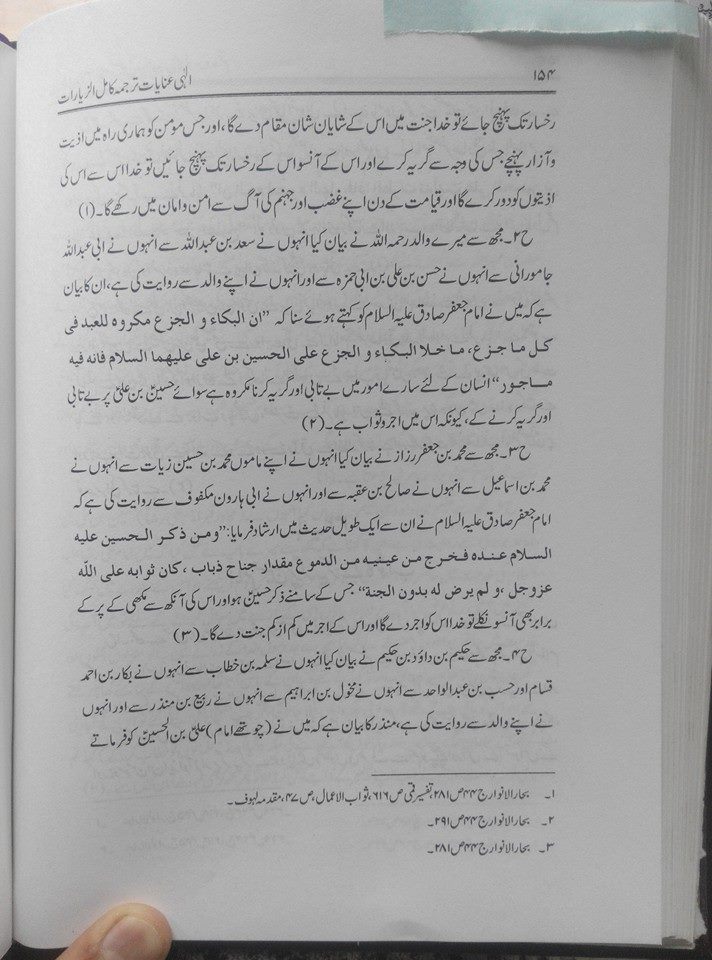 ۱۵۴
الٰہی عنایات ترجمہ کامل الزیارات
رخسار تک پہنچ جائے تو خدا جنت میں اس کے شایان شان مقام دے گا، اور جس مؤمن کو ہماری راہ میں اذیت
و آزار پہنچے جس کی وجہ سے گریہ کرے اور اس کے آنسو اس کے رخسار تک پہنچ جائیں تو خدا اس سے اس کی
اذیتوں کو دور کرے گا اور قیامت کے دن اپنے غضب اور جہنم کی آگ سے امن و امان میں رکھے گا۔(۱)
ح۲۔ مجھ سے میرے والد رحمہ اللہ نے بیان کیا انہوں نے سعد بن عبداللہ سے انہوں نے ابی عبداللہ
جامورانی سے انہوں نے حسن بن علی بن ابی حمزہ سے اور انہوں نے اپنے والد سے روایت کی ہے، ان کا بیان
ہے کہ میں نے امام جعفر صادق علیہ السلام کو کہتے ہوئے سنا کہ ”ان البکاء و الجزع مکروہ للعبد فی
کل ما جزع، ما خلا البکاء و الجزع علی الحسین بن علی علیهما السلام فانه فیه
ماجود“ انسان کے لئے سارے امور میں بے تابی اور گریہ کرنا مکروہ ہے سوائے حسینؑ بن علیؑ پر بے تابی
اور گریہ کرنے کے، کیونکہ اس میں اجر و ثواب ہے۔(۲)
ح۳۔ مجھ سے محمد بن جعفر رزاز نے بیان کیا انہوں نے اپنے ماموں محمد بن حسین زیات سے انہوں نے
محمد بن اسماعیل سے انہوں نے صالح بن عقبہ سے اور انہوں نے ابی ہارون مکفوف سے روایت کی ہے کہ
امام جعفر صادق علیہ السلام نے ان سے ایک طویل حدیث میں ارشاد فرمایا: ”ومن ذکر الحسین علیه
السلام عنده فخرج من عینیه من الدموع مقدار جناح ذباب ، کان ثوابه علی اللّٰه
عزوجل ،و لم یرض له بدون الجنة“ جس کے سامنے ذکر حسینؑ ہو اور اس کی آنکھ سے مکھی کے پر کے
برابر بھی آنسو نکلے تو خدا اس کو اجر دے گا اور اس کے اجر میں کم از کم جنت دے گا۔(۳)
ح۴۔ مجھ سے حکیم بن داؤد بن حکیم نے بیان کیا انہوں نے سلمہ بن خطاب سے انہوں نے بکار بن احمد
قسام اور حسب بن عبدالواحد سے انہوں نے مخول بن ابراہیم سے انہوں نے ربیع بن منذر سے اور انہوں
نے اپنے والد سے روایت کی ہے، منذر کا بیان ہے کہ میں نے (چوتھے امام) علیؑ بن الحسینؑ کو فرماتے
۱۔ بحار الانوار ج ۴۴ ص ۲۸۱، تفسیر قمی ص ۶۱۶، ثواب الاعمال، ص ۴۷، مقدمہ لہوف۔
۲۔ بحار الانوار ج ۴۴ ص ۲۹۱۔
۳۔ بحار الانوار ج ۴۴ ص ۲۸۱۔